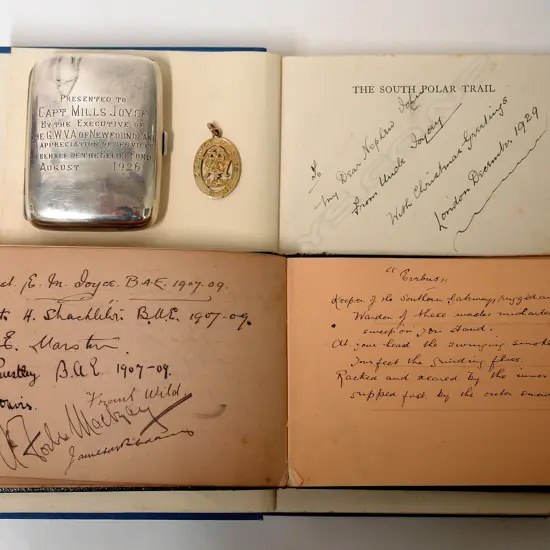 PRESENTED TO
CAPT MILLS JOYCE
BY THE EXECUTIVE OF
THE G.W.V.A OF NEWFOUNDLAND
APPRECIATION OF SERVICES
BEHALF OF THE RELIEF FUND
AUGUST 1926
THE SOUTH POLAR TRAIL
To
My Dear Nephew
From Uncle
With Christmas Greetings
London December 1929
E. M. Joyce B.A.E. 1907-09.
H. Shackleton B.A.E. 1907-09.
E. Marston
B.A.E 1907-09.
Frank Wild
"Erebus"
Keeper of the Southern Gateway, rugged
Warden of these wastes uncharted
sweep on you stand.
At your head the swinging smoke
your feet the grinding floes.
Racked and seared by the inner
gripped fast by the outer